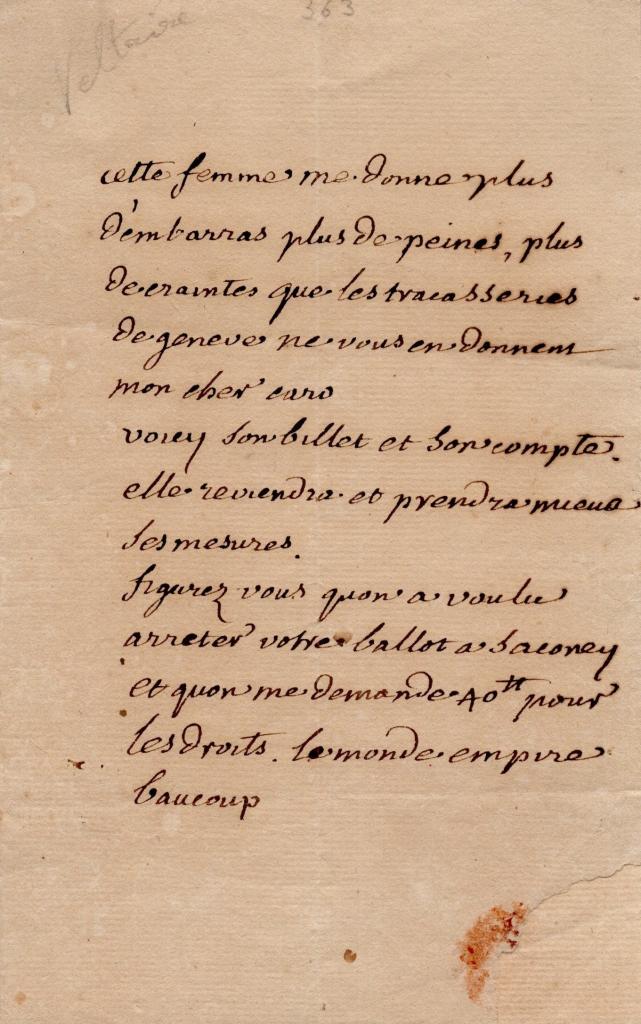 Voltaire
363
cette femme me donne plus
d'embarras plus de peines, plus
de craintes que les tracasseries
de geneve ne vous en donnent
mon cher caro
voicy son billet et son compte.
elle reviendra et prendra mieux
ses mesures.
figurez vous quon a voulu
arreter votre ballot a saconey
et quon me demande 40tt pour
les droits. le monde empire
baucoup